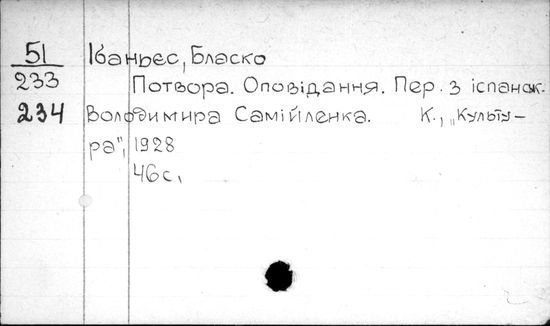 51 Ібаньєс, Бласко
233 Потвора. Оповідання. Пер. з іспанськ.
234 Володимира Самійленка. К., „Культу-
ра", 1928
46 с.